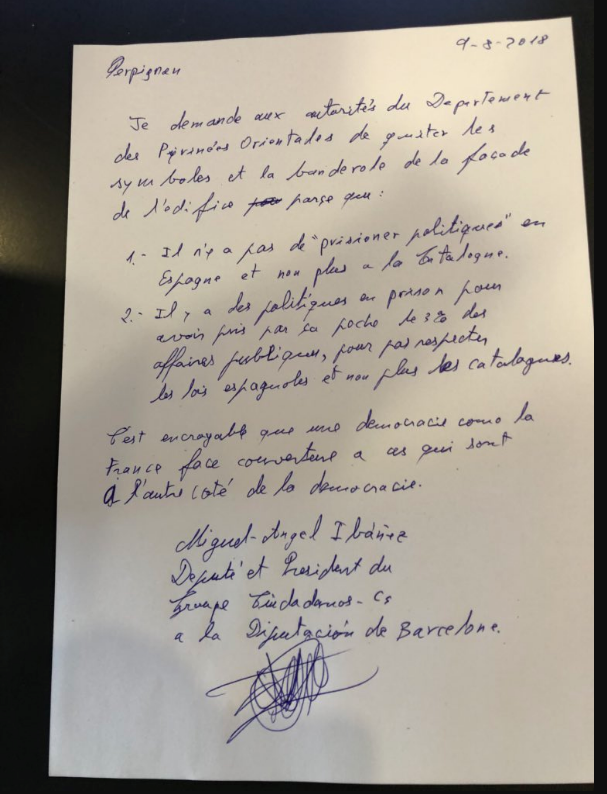 9-8-2018
Perpignan
Je demande aux autorités du Departement
des Pyrinées Orientades de quister les
symboles et la banderole de la façade
de l'edifice parçe que :
1.- Il n'y a pas de "prisioner politiques" en
Espagne et non plus a la Catalogne.
2.- Il y a des politiques en prison pour
avoir pris par sa poche le 3% des
affaires publiques, pour pas respecter
les lois espagnoles et non plus les catalagnes.
C'est encroyable que une democracie como la
France face couverture a ces qui sont
a l'autre coté de la democracie.
Miguel-Angel Ibáñez
Deputé et President du
Groupe Ciudadanos-Cs
a la Diputación de Barcelone.